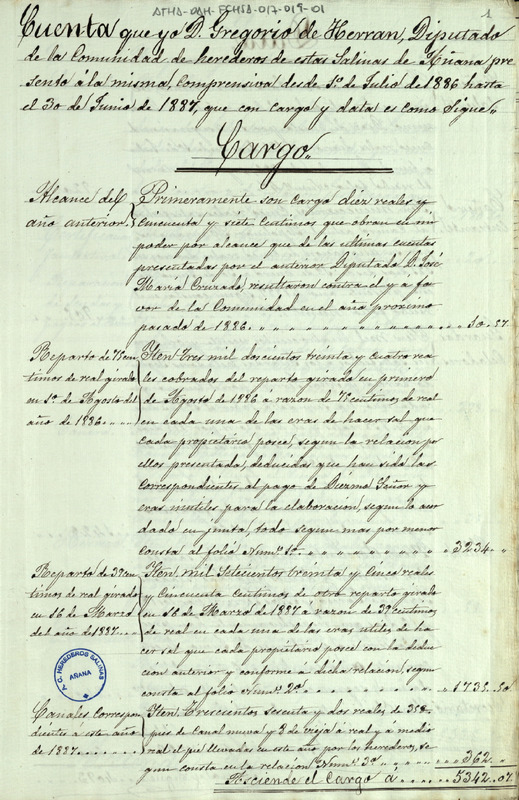 ATHA-DAH-FCHSA-017-019-01
1
Cuenta que yo D. Gregorio de Herran, Diputado
de la Comunidad de herederos de estas Salinas de Añana pre
sento á la misma, comprensiva desde 1º de Julio de 1886 hasta
el 30 de Junio de 1887, que con cargo y data es como sigue.
Cargo.
Alcance del
año anterior.
Primeramente son cargo diez reales y
cincuenta y siete centimos que obran en mi
poder por alcance que de las ultimas cuentas
presentadas por el anterior Diputado D. José
Maria Cruzado, resultaron contra el y á fa
vor de la Comunidad en el año proximo
pasado de 1886. 10.57
Reparto de 75 cen
timos de real girado
en 1º de Agosto del
año de 1886.
Iten tres mil doscientos treinta y cuatro rea
les cobrados del reparto girado en primero
de Agosto de 1886 á razon de 75 centimos de real
en cada una de las eras de hacer sal que
cada propietario posee, segun la relacion po
ellos presentada, deducidas que han sido las
correspondientes al pago de Diezmo Señor y
eras inutiles para la elaboracion, segun lo acor
dado en junta, todo segun mas por menor
consta al folio Num.º 1º. 3234
Reparto de 39 cen
timos de real girado
en 16 de Marzo
del año de 1887.
Iten mil setecientos treinta y cinco reales
y cincuenta centimos de otro reparto girado
en 16 de Marzo de 1887 á razon de 39 centimos
de real en cada una de las eras utiles de ha
cer sal que cada propietario posee con la deduc
cion anterior y conforme á dicha relacion, segun
consta al folio Num.º 2º. 1735.50
Canales correspon
dientes á este año
de 1887.
Iten trescientos sesenta y dos reales de 358
pies de canal nueva y 8 de vieja á real y á medio
real el pie llevadas en este año por los herederos, se
gun consta en la relacion Num.º 3º 362
Asciende el Cargo a 5342.07
C. HEREDEROS SALINAS
AÑANA